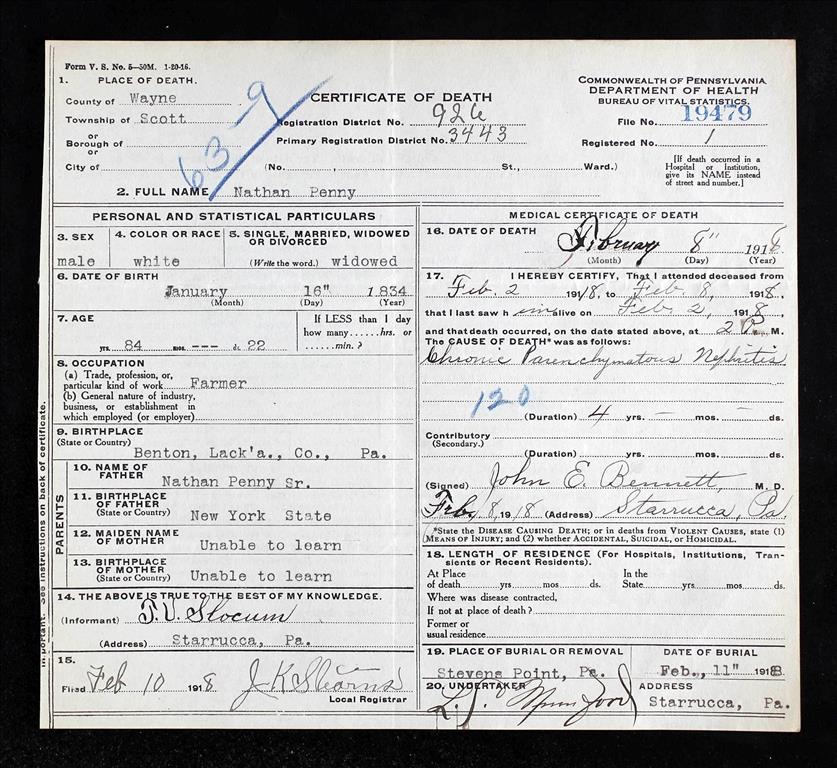 Form V. S. No. 5—50M. 1-20-16.
1. PLACE OF DEATH.
County of Wayne
Township of Scott
or
Borough of
or
City of
63-9
CERTIFICATE OF DEATH
Registration District No. 926
Primary Registration District No. 3443
(No. , St., Ward.)
COMMONWEALTH OF PENNSYLVANIA
DEPARTMENT OF HEALTH
BUREAU OF VITAL STATISTICS.
File No. 19479
Registered No. 1
[If death occurred in a
Hospital or Institution,
give its NAME instead
of street and number.]
2. FULL NAME Nathan Penny
PERSONAL AND STATISTICAL PARTICULARS
3. SEX
male
4. COLOR OR RACE
white
5. SINGLE, MARRIED, WIDOWED
OR DIVORCED
(Write the word.) widowed
6. DATE OF BIRTH
January 16" 1834
(Month) (Day) (Year)
7. AGE
84 yrs. --- mos. 22 ds.
If LESS than 1 day
how many......hrs. or
......min.?
8. OCCUPATION
(a) Trade, profession, or,
particular kind of work Farmer
(b) General nature of industry,
business, or establishment in
which employed (or employer)
9. BIRTHPLACE
(State or Country)
Benton, Lack'a., Co., Pa.
PARENTS
10. NAME OF
FATHER
Nathan Penny Sr.
11. BIRTHPLACE
OF FATHER
(State or Country) New York State
12. MAIDEN NAME
OF MOTHER
Unable to learn
13. BIRTHPLACE
OF MOTHER
(State or Country) Unable to learn
14. THE ABOVE IS TRUE TO THE BEST OF MY KNOWLEDGE.
(Informant) T. V. Slocum
(Address) Starrucca, Pa.
15.
Filed Feb 10 1918 J K Stearns
Local Registrar
important. See instructions on back of certificate.
MEDICAL CERTIFICATE OF DEATH
16. DATE OF DEATH
February 8" 1918
(Month) (Day) (Year)
17. I HEREBY CERTIFY, That I attended deceased from
Feb. 2 1918, to Feb. 8, 1918,
that I last saw him alive on Feb. 2, 1918,
and that death occurred, on the date stated above, at 2 P. M.
The CAUSE OF DEATH* was as follows:
Chronic Parenchymatous Nephritis
120
(Duration) 4 yrs. — mos. — ds.
Contributory
(Secondary.)
(Duration) yrs. mos. ds.
(Signed) John E. Bennett, M. D.
Feb. 8, 1918 (Address) Starrucca, Pa.
*State the DISEASE CAUSING DEATH; or in deaths from VIOLENT CAUSES, state (1)
MEANS OF INJURY; and (2) whether ACCIDENTAL, SUICIDAL, or HOMICIDAL.
18. LENGTH OF RESIDENCE (For Hospitals, Institutions, Tran-
sients or Recent Residents).
At Place
of death yrs. mos. ds.
In the
State yrs. mos. ds.
Where was disease contracted,
if not at place of death?
Former or
usual residence
19. PLACE OF BURIAL OR REMOVAL
Stevens Point, Pa.
DATE OF BURIAL
Feb., 11" 1918
20. UNDERTAKER
L.
ADDRESS
Starrucca, Pa.